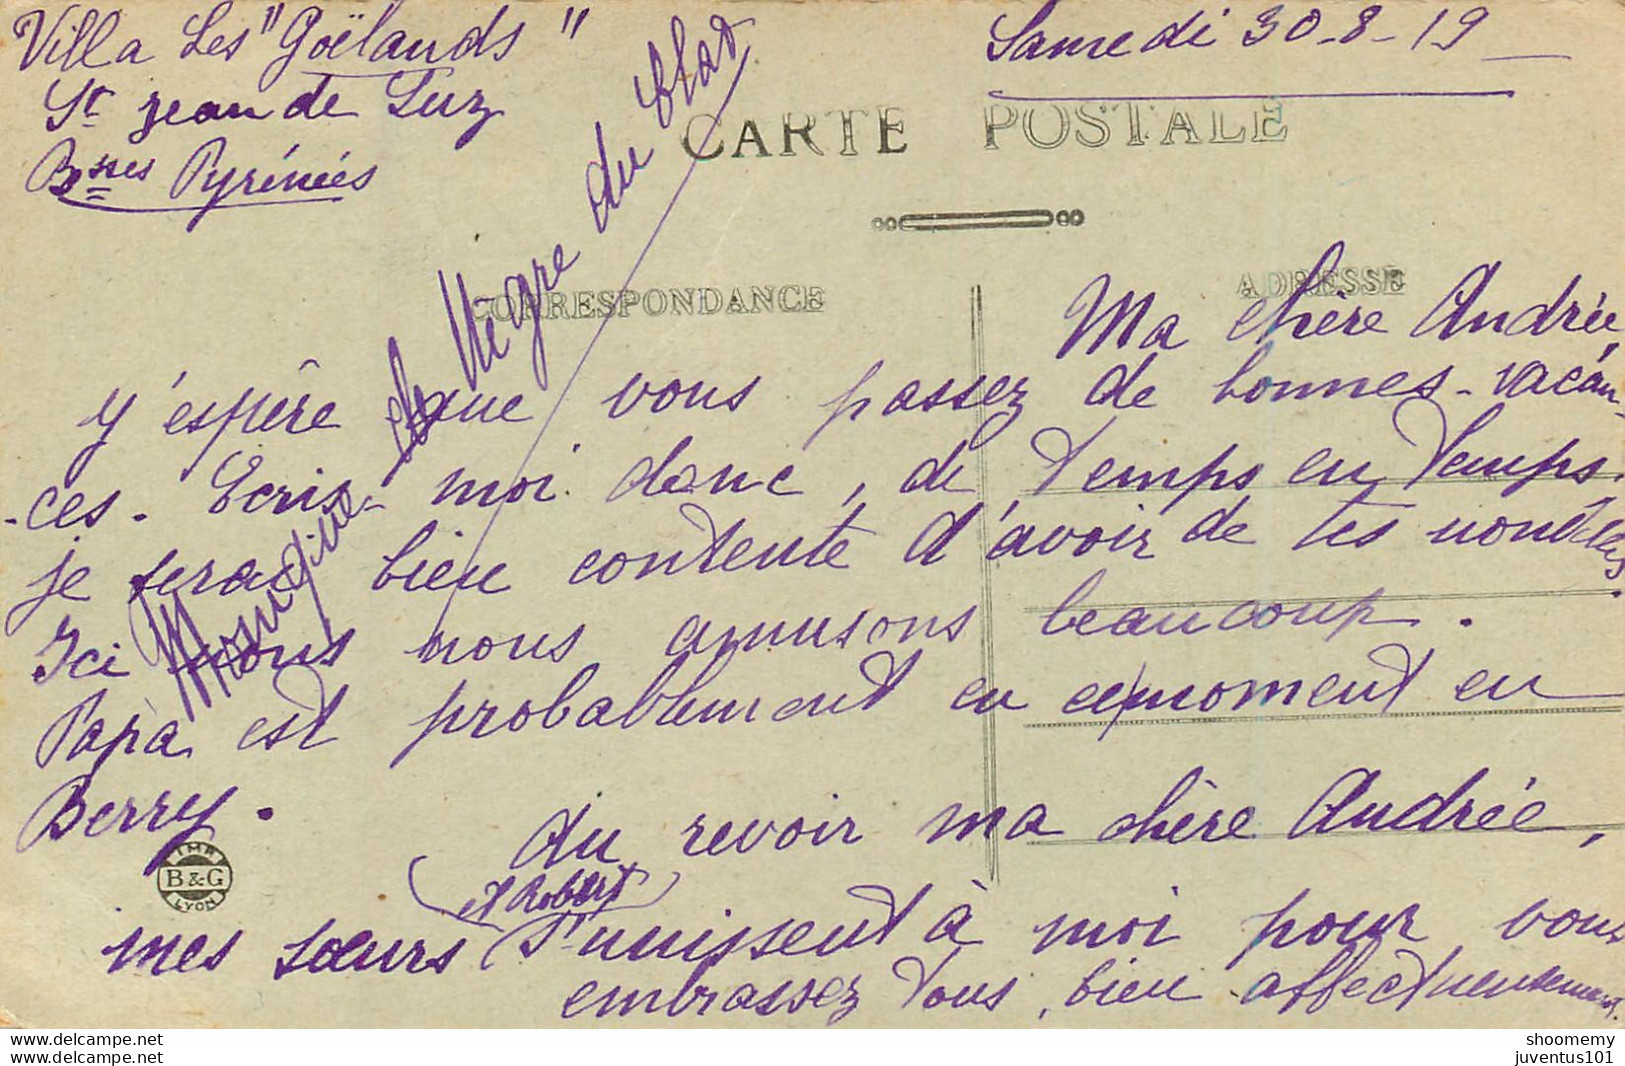 Villa Les "Goëlands"
Samedi 30-8-19
St Jean de Luz
Bsses Pyrénées
CARTE POSTALE
CORRESPONDANCE
ADRESSE
Ma chère Andrée,
J'espère que vous passez de bonnes-vacan-
-ces. Ecris-moi donc, de temps en temps.
je serai bien contente d'avoir de tes nouvelles.
Ici nous nous amusons beaucoup.
Papa est probablement en ce moment en
Berry.
Au revoir ma chère Andrée,
(et Robert)
mes sœurs s'unissent à moi pour vous
embrassez tous, bien affectueusement.
du
IMP.
B & G
LYON
shoomemy
juventus101